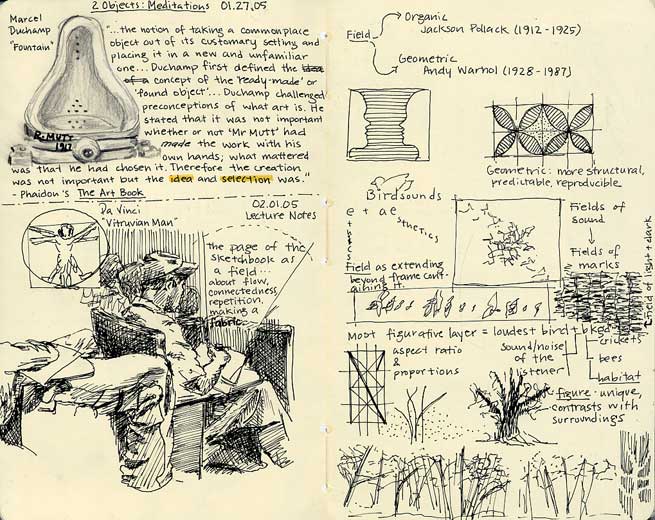 2 Objects: Meditations 01.27.05
Marcel
Duchamp
"Fountain"
"...the notion of taking a commonplace
object out of its customary setting and
placing it in a new and unfamiliar
one... Duchamp first defined the idea
of a concept of the 'ready-made' or
'found object'... Duchamp challenged
preconceptions of what art is. He
stated that it was not important
whether or not 'Mr Mutt' had
made the work with his
own hands; what mattered
was that he had chosen it. Therefore the creation
was not important but the idea and selection was."
- Phaidon's The Art Book
R. MUTT
1917
Da Vinci
"Vitruvian Man"
02.01.05
Lecture Notes
the page of the
sketchbook as
a field...
about flow,
connectedness
repetition,
making a
fabric.
Field
Organic
Jackson Pollack (1912-1925)
Geometric
Andy Warhol (1928-1987)
Geometric: more structural,
predictable, reproducible.
Birdsounds
e t ae
sthetics
thecs
Field as extending
beyond frame cont-
aining it.
Fields of
sound
Fields of
marks
field of light + dark
Most figurative layer = loudest bird + bkgd
crickets
bees
habitat
sound/noise
of the
listener
aspect ratio
&
proportions
figure - unique,
contrasts with
surroundings